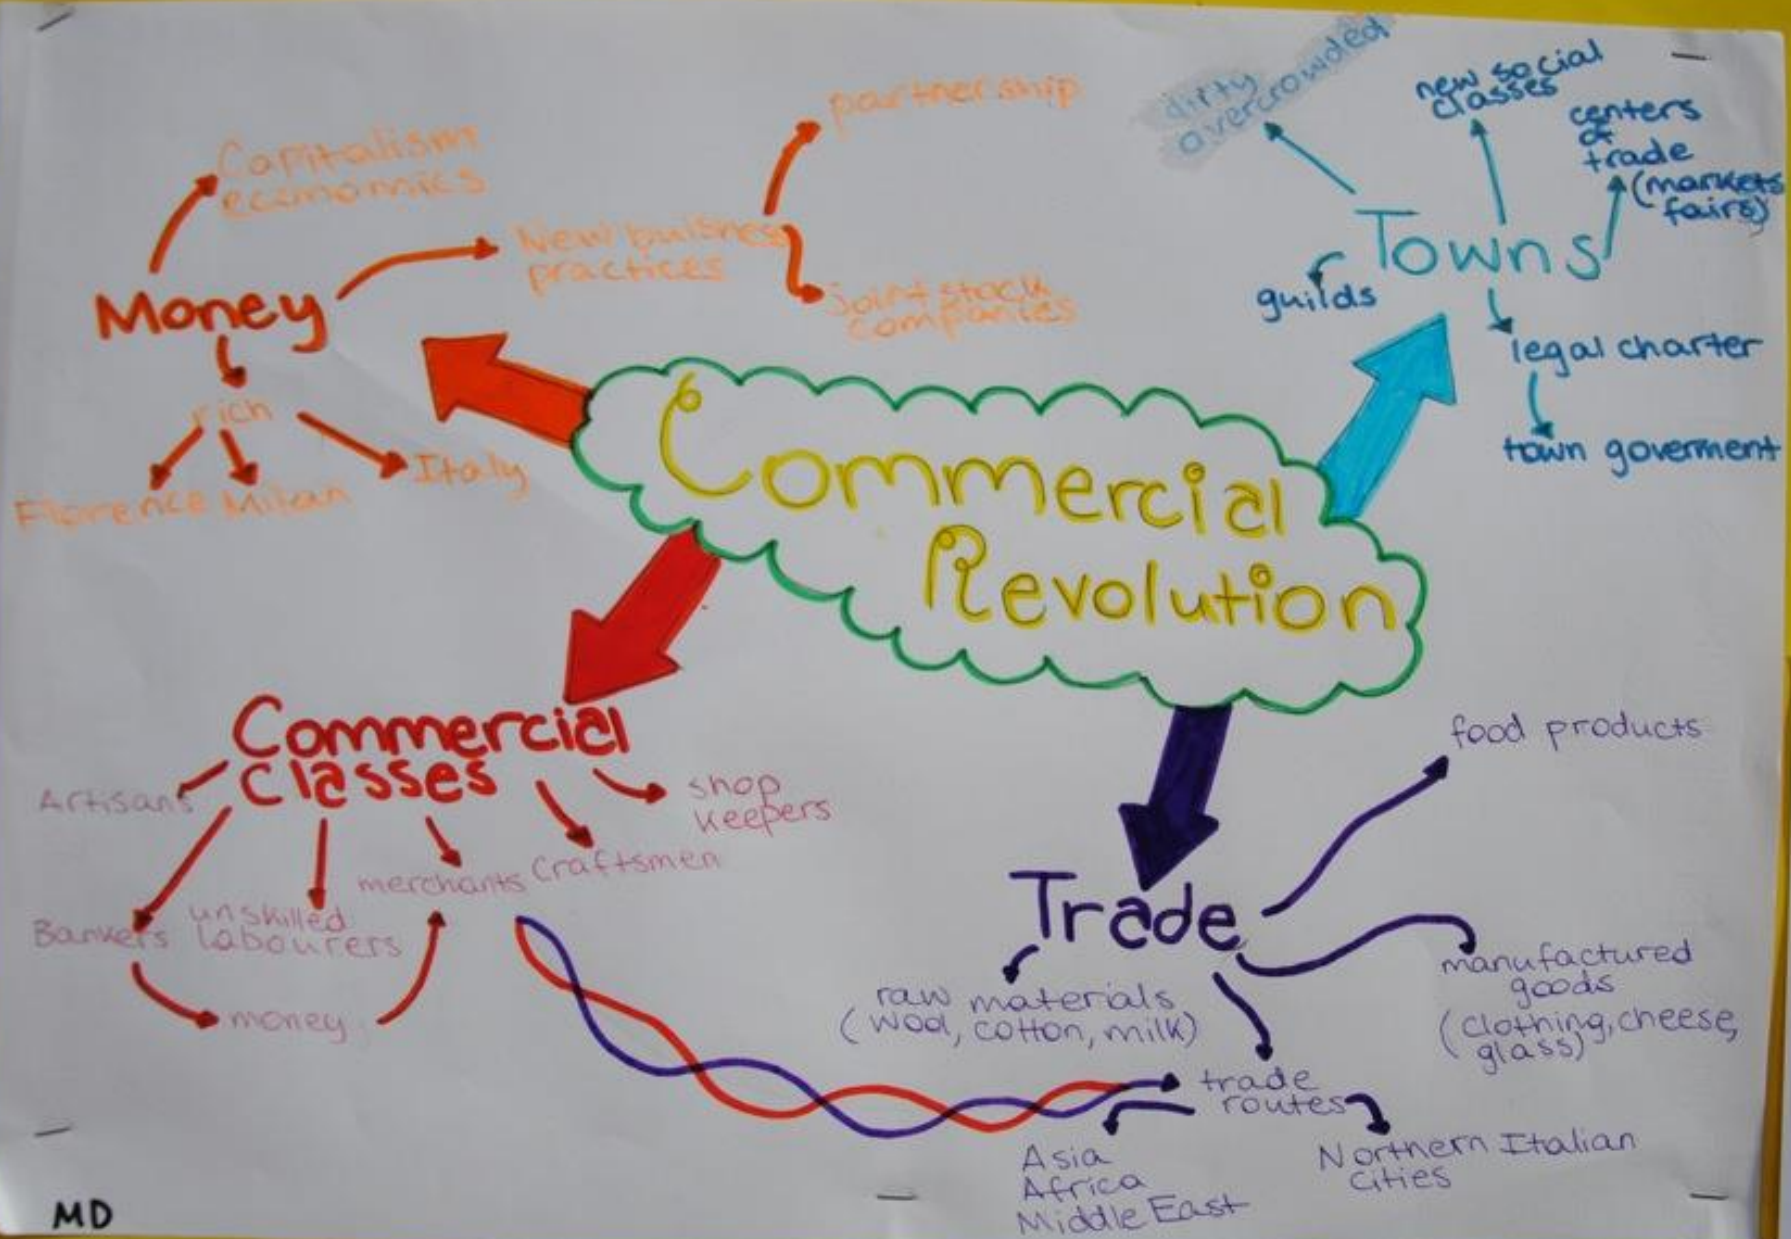 Commercial
Revolution
Money
Capitalism
economics
New buisness
practices
partnership
joint stock
companies
rich
Florence
Milan
Italy
Towns
dirty
overcrowded
new social
classes
centers
of
trade
(markets
fairs)
guilds
legal charter
town goverment
Commercial
Classes
Artisans
Bankers
unskilled
labourers
merchants
Craftsmen
shop
keepers
money
Trade
food products
manufactured
goods
(clothing, cheese,
glass)
raw materials
(wool, cotton, milk)
trade
routes
Asia
Africa
Middle East
Northern Italian
cities
MD